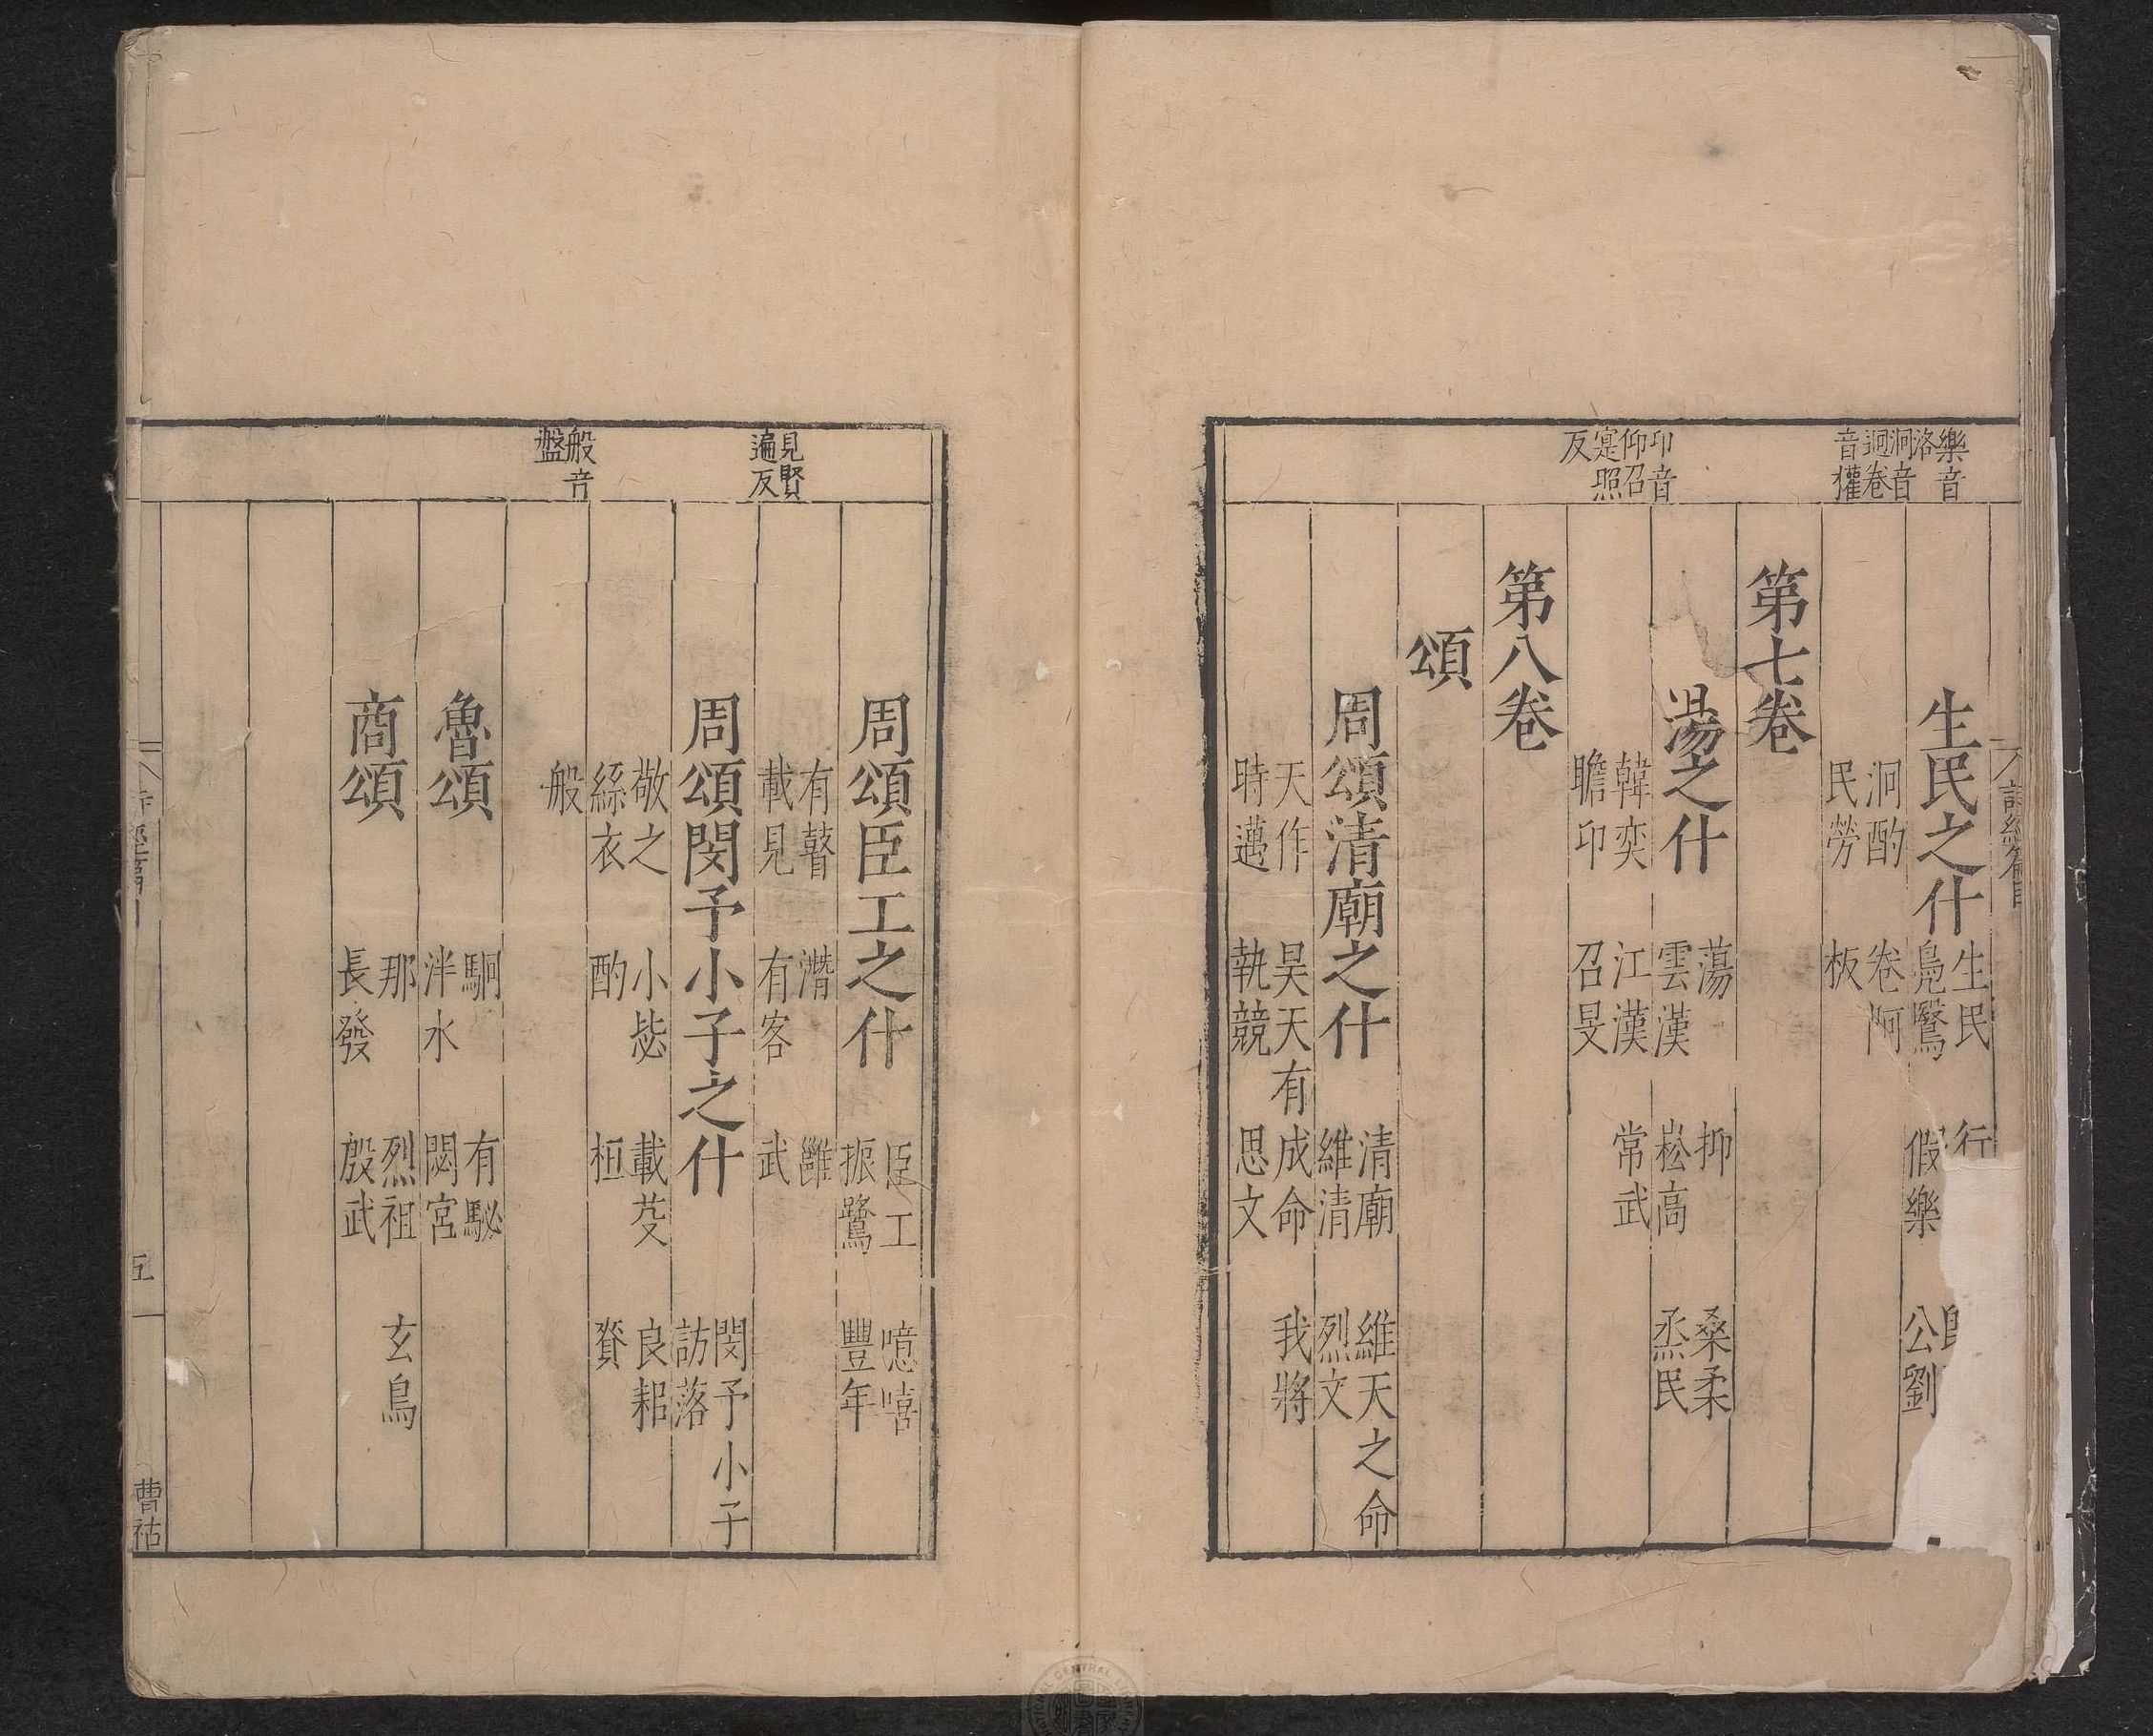 詩經篇目
樂音
洛
泂音
迥卷
音獾
生民之什
生民
行
鳧鷖
假樂
公劉
泂酌
卷阿
民勞
板
第七卷
蕩之什
蕩
抑
桑柔
雲漢
崧高
烝民
卬音
仰召
寔照
反
韓奕
江漢
常武
瞻卬
召旻
第八卷
頌
周頌清廟之什
清廟
維天之命
維清
烈文
天作
昊天有成命
我將
時邁
執競
思文
周頌臣工之什
臣工
噫嘻
振鷺
豐年
見賢
遍反
有瞽
潛
雝
載見
有客
武
周頌閔予小子之什
閔予小子
訪落
敬之
小毖
載芟
良耜
絲衣
酌
桓
賚
般音
盤
般
魯頌
駉
有駜
泮水
閟宮
商頌
那
烈祖
玄鳥
長發
殷武
五
曹祜